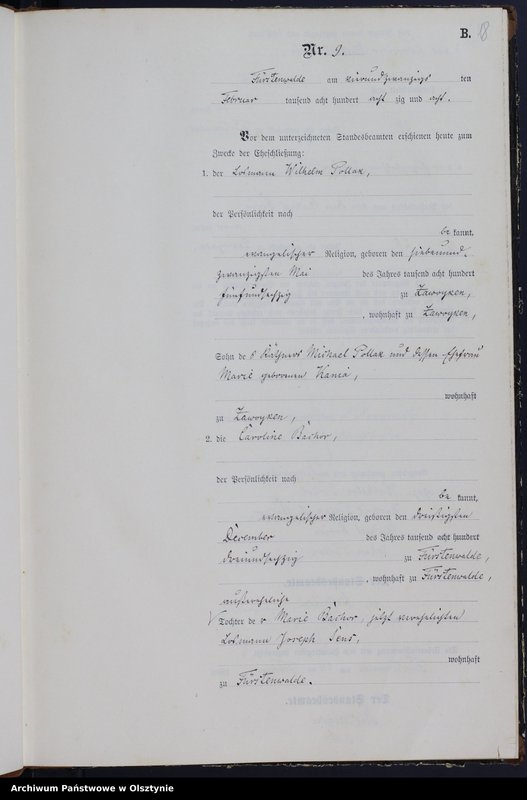 B. 18
Nr. 9.
Fürstenwalde am vierundzwanzigs ten
Februar tausend acht hundert acht zig und acht.
Vor dem unterzeichneten Standesbeamten erschienen heute zum
Zwecke der Eheschließung:
1. der Losmann Wilhelm Pollak,
der Persönlichkeit nach
be kannt,
evangelischer Religion, geboren den siebenund-
zwanzigsten Mai des Jahres tausend acht hundert
fünfundsechzig zu Zawoyken,
, wohnhaft zu Zawoyken,
Sohn des Käthners Michael Pollak und dessen Ehefrau
Marie geborenen Kania,
wohnhaft
zu Zawoyken,
2. die Caroline Bachor,
der Persönlichkeit nach
be kannt,
evangelischer Religion, geboren den dreißigsten
December des Jahres tausend acht hundert
dreiundsechzig zu Fürstenwalde,
, wohnhaft zu Fürstenwalde,
außereheliche
Tochter der Marie Bachor, jetzt verehelichten
Losmann Joseph
wohnhaft
zu Fürstenwalde.
Archiwum Państwowe w Olsztynie